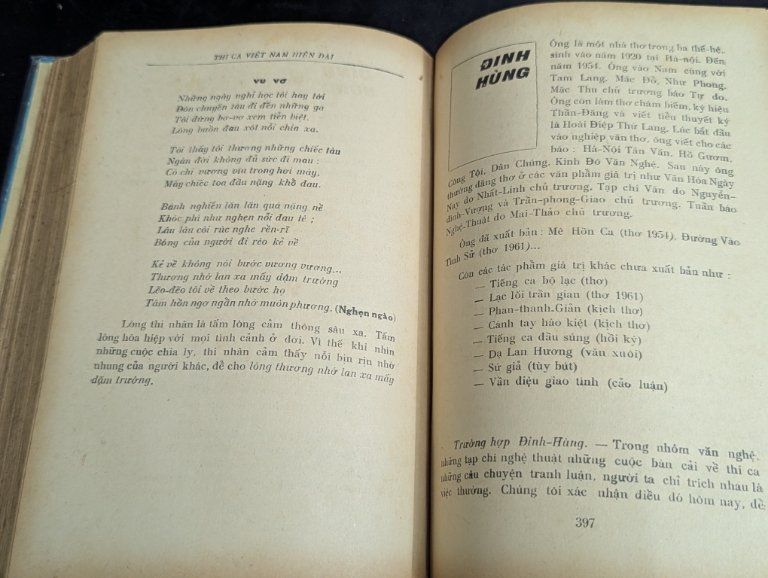 THI CA VIỆT NAM HIỆN ĐẠI
VU VƠ
Những ngày nghỉ học tôi hay tới
Đón chuyến tàu đi đến những ga
Tôi đứng bơ-vơ xem tiễn biệt
Lòng buồn đau xót nỗi chia xa.
Tôi thấy tôi thương những chiếc tàu
Ngàn đời không đủ sức đi mau :
Có chi vương víu trong hơi máy,
Mấy chiếc toa đầu nặng khổ đau.
Bánh nghiến lăn lăn quá nặng nề
Khóc phì như nghẹn nỗi đau tê ;
Lâu lâu còi rúc nghe rền-rĩ
Bóng của người đi réo kẻ về
Kẻ về không nói bước vương vương...
Thương nhớ lan xa mấy dặm trường
Lẽo-đẽo tôi về theo bước họ
Tâm hồn ngơ ngẩn nhớ muôn phương. (Nghẹn ngào)
Lòng thi nhân là tấm lòng cảm thông sâu xa. Tấm
lòng hòa hiệp với mọi tình cảnh ở đời. Vì thế khi nhìn
những cuộc chia ly, thi nhân cảm thấy nỗi bịn rịn nhớ
nhung của người khác, để cho lòng thương nhớ lan xa mấy
dặm trường.
ĐINH
HÙNG
Ông là một nhà thơ trong ba thế-hệ,
sinh vào năm 1920 tại Hà-nội. Đến
năm 1954. Ông vào Nam cùng với
Tam Lang. Mặc Đỗ, Như Phong.
Mặc Thu chủ trương báo Tự do.
Ông còn làm thơ châm biếm, ký hiệu
Thần-Đăng và viết tiểu thuyết ký
là Hoài Điệp Thứ Lang. Lúc bắt đầu
vào nghiệp văn thơ, ông viết cho các
báo : Hà-Nội Tân Văn, Hồ Gươm,
Công Tội, Dân Chúng, Kinh Đô Văn Nghệ. Sau này ông
thường đăng thơ ở các văn phẩm giá trị như Văn Hóa Ngày
Nay do Nhất-Linh chủ trương. Tạp chí Văn do Nguyễn-
đình-Vượng và Trần-phong-Giao chủ trương. Tuần báo
Nghệ-Thuật do Mai-Thảo chủ trương.
Ông đã xuất bản : Mê Hồn Ca (thơ 1954), Đường Vào
Tình Sử (thơ 1961)...
Còn các tác phẩm giá trị khác chưa xuất bản như :
— Tiếng ca bộ lạc (thơ)
— Lạc lối trần gian (thơ 1961)
— Phan-thanh-Giản (kịch thơ)
— Cánh tay hào kiệt (kịch thơ)
— Tiếng ca đầu súng (hồi ký)
— Dạ Lan Hương (văn xuôi)
— Sứ giả (tùy bút)
— Vần điệu giao tình (cảo luận)
Trường hợp Đinh-Hùng. — Trong nhóm văn nghệ.
những tạp chí nghệ thuật những cuộc bàn cãi về thi ca
những câu chuyện tranh luận, người ta chỉ trích nhau là
việc thường. Chúng tôi xác nhận điều đó hôm nay, để
397